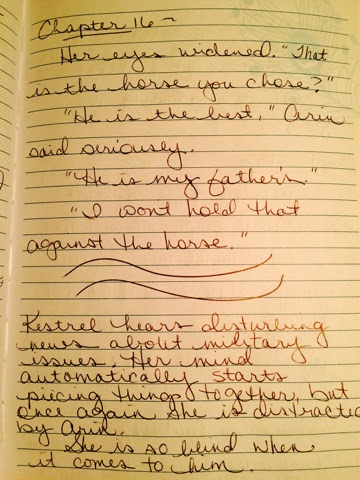 Chapter 16 ~
Her eyes widened. "That
is the horse you chose?"
"He is the best," Arin
said seriously.
"He is my father's."
"I wont hold that
against the horse."
Kestrel hears disturbing
news about military
issues. Her mind
automatically starts
piecing things together, but
once again she is distracted
by Arin.
She is so blind when
it comes to him.